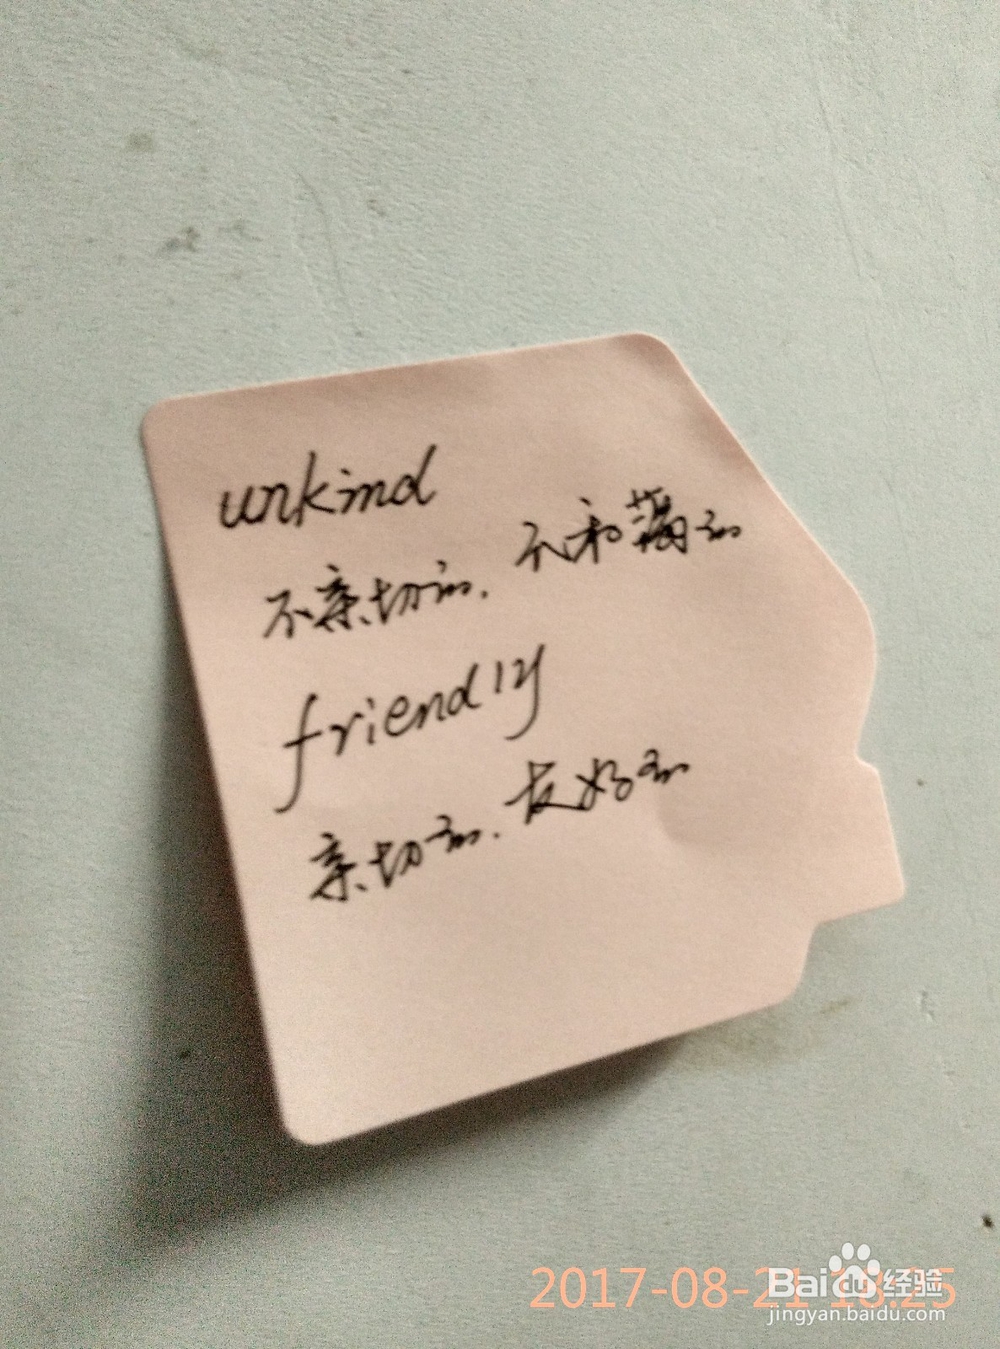 unkind
不亲切的, 不和蔼的
friendly
亲切的, 友好的
2017-08-21 18:25
Baidu 经验
jingyan.baidu.com